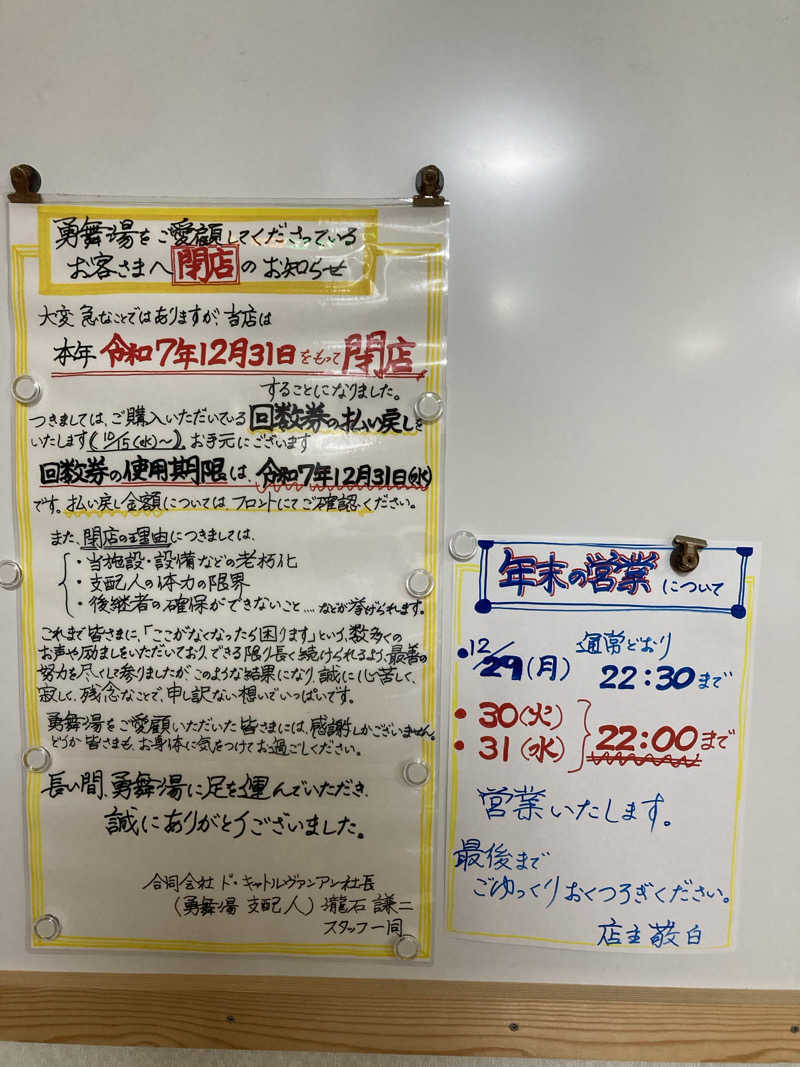 勇舞湯をご愛顧してくださっている
お客さまへ閉店のお知らせ
大変 急なことではありますが、当店は
本年 令和7年12月31日をもって閉店
することになりました。
つきましては、ご購入いただいている回数券の払い戻しを
いたします(12/15(水)〜)。お手元にございます
回数券の使用期限は、令和7年12月31日(水)
です。払い戻し金額については、フロントにてご確認ください。
また、閉店の理由につきましては、
・当施設・設備などの老朽化
・支配人の体力の限界
・後継者の確保ができないこと....などが挙げられます。
これまで皆さまに、「ここがなくなったら困ります」という、数多くの
お声や励ましをいただいており、できる限り長く続けられるよう、最善の
努力を尽くして参りましたが、このような結果になり、誠に心苦しく、
寂しく、残念なことで、申し訳ない想いでいっぱいです。
勇舞湯をご愛顧いただいた皆さまには、感謝しかございません。
どうか皆さまも、お身体に気をつけてお過ごしください。
長い間、勇舞湯に足を運んでいただき、
誠にありがとうございました。
合同会社 ド・キャトルヴァンアン社長
(勇舞湯 支配人) 瀧石 謙二
スタッフ一同
年末の営業について
・12/29(月) 通常どおり 22:30まで
・30(火)
・31(水) 22:00まで
営業いたします。
最後まで
ごゆっくりおくつろぎください。
店主敬白